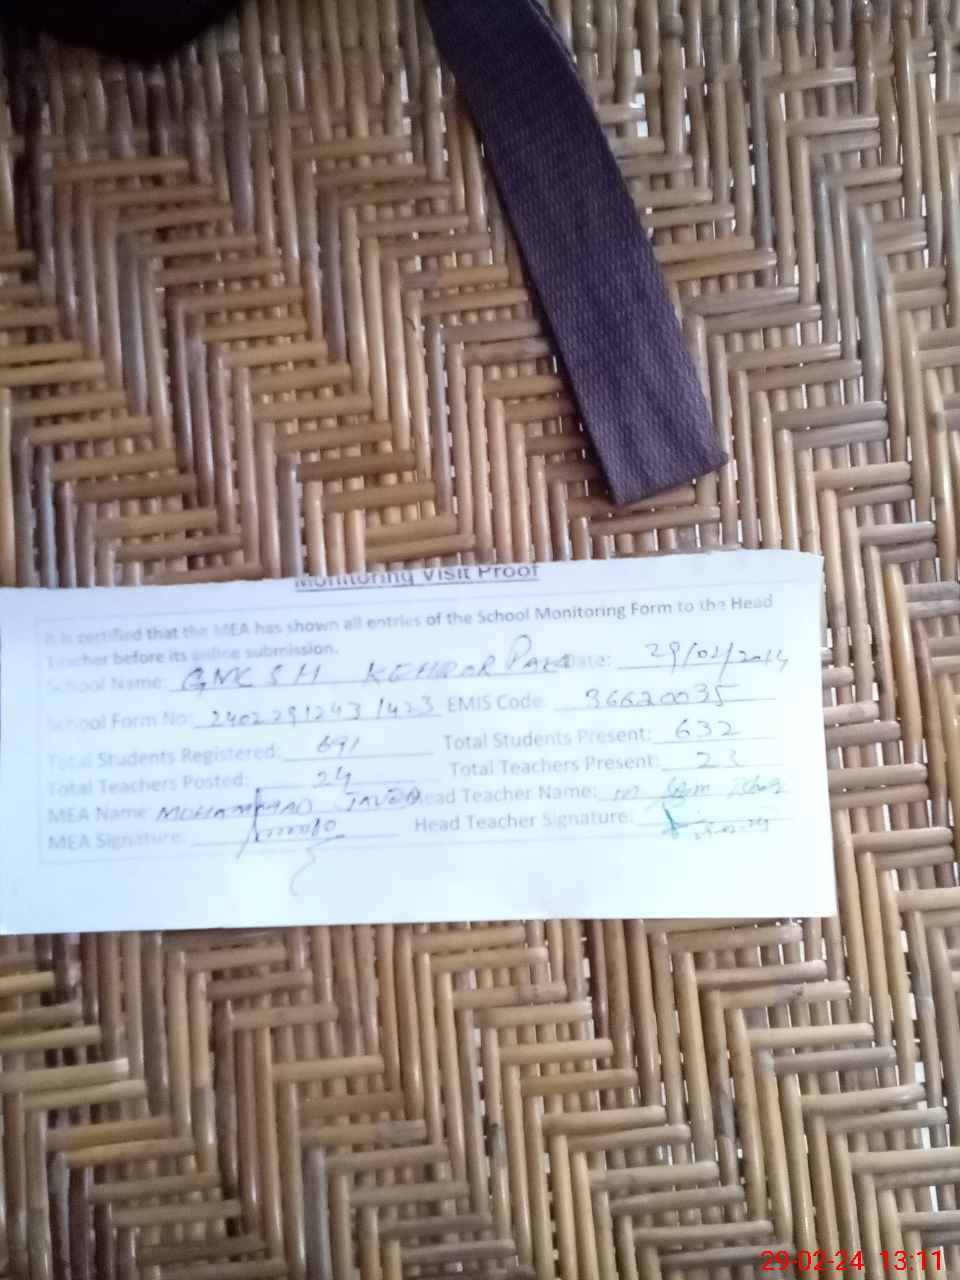 Monitoring Visit Proof
It is certified that the MEA has shown all entries of the School Monitoring Form to the Head
Teacher before its online submission.
School Name: GMCSH KEHROR PAKA Date: 29/02/2024
School Form No: 2402291243/423 EMIS Code: 36620035
Total Students Registered: 691 Total Students Present: 632
Total Teachers Posted: 24 Total Teachers Present: 23
MEA Name: MOHAMMAD JAVED Head Teacher Name: M.
MEA Signature: Head Teacher Signature:
29-02-24 13:11